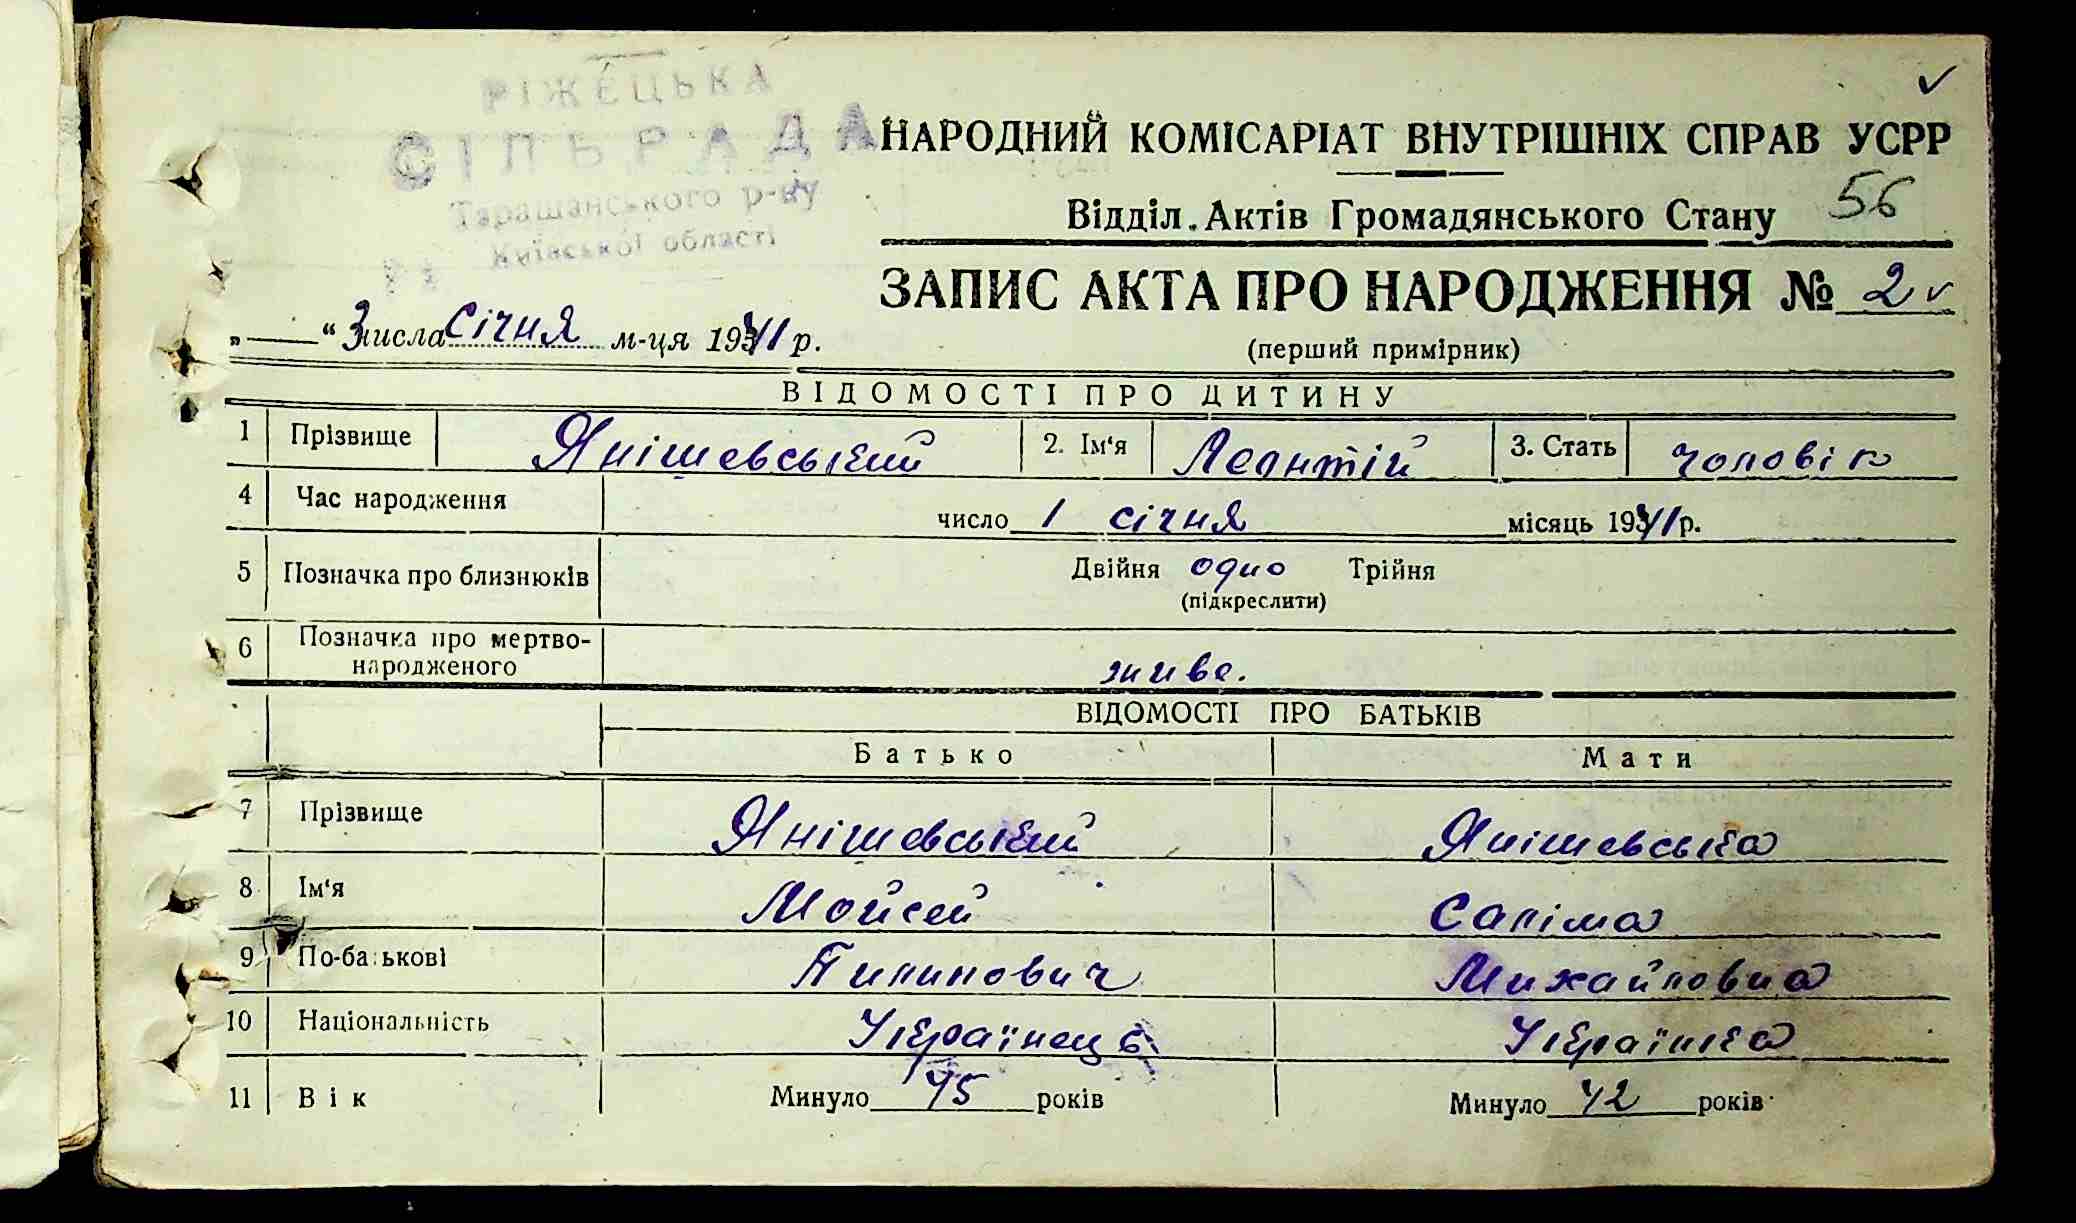 РІЖЕЦЬКА
СІЛЬРАДА
Таращанського р-ну
Київської області
НАРОДНИЙ КОМІСАРІАТ ВНУТРІШНІХ СПРАВ УСРР
Відділ Актів Громадянського Стану 56
ЗАПИС АКТА ПРО НАРОДЖЕННЯ № 2
„ — “ 3 числа січня м-ця 1941 р.
(перший примірник)
ВІДОМОСТІ ПРО ДИТИНУ
1 Прізвище Янішевський 2. Ім‘я Леонтій 3. Стать чоловік
4 Час народження число 1 січня місяць 1941 р.
5 Позначка про близнюків Двійня одно Трійня
(підкреслити)
6 Позначка про мертво-
народженого живе.
ВІДОМОСТІ ПРО БАТЬКІВ
Батько Мати
7 Прізвище Янішевський Янішевська
8 Ім‘я Мойсей Саліма
9 По-батькові Пилипович Михайловна
10 Національність Українець Українка
11 Вік Минуло 45 років Минуло 42 років